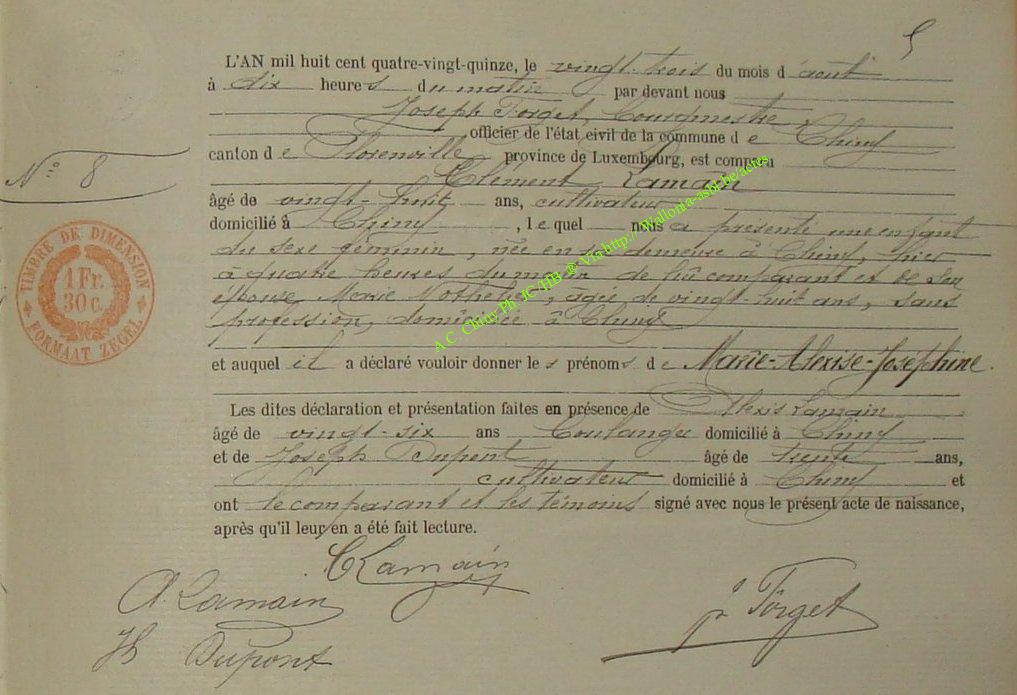 5
L'AN mil huit cent quatre-vingt-quinze, le vingt-trois du mois d'août
à dix heures du matin par devant nous
Joseph Forget, Bourgmestre,
officier de l'état civil de la commune de Chiny
canton de Florenville province de Luxembourg, est comparu
N° 8
Clément Lamain
âgé de vingt-huit ans, cultivateur
domicilié à Chiny, lequel nous a présenté une enfant
du sexe féminin, née en sa demeure à Chiny, hier
à quatre heures du matin de lui comparant et de son
épouse Marie, âgée de vingt-huit ans, sans
profession, domiciliée à Chiny
et auquel il a déclaré vouloir donner les prénoms de Marie-Alexise-Joséphine.
Les dites déclaration et présentation faites en présence de Alexis Lamain
âgé de vingt-six ans Boulanger domicilié à Chiny
et de Joseph Dupont âgé de trente ans,
cultivateur domicilié à Chiny et
ont le comparant et les témoins signé avec nous le présent acte de naissance,
après qu'il leur en a été fait lecture.
C Lamain
A. Lamain
J. Forget
Dupont
TIMBRE DE DIMENSION
1 Fr.
30 c.
FORMAAT ZEGEL
A C Chiny Ph JC /HB @ Via http://Wallonia-asbl.be/actes